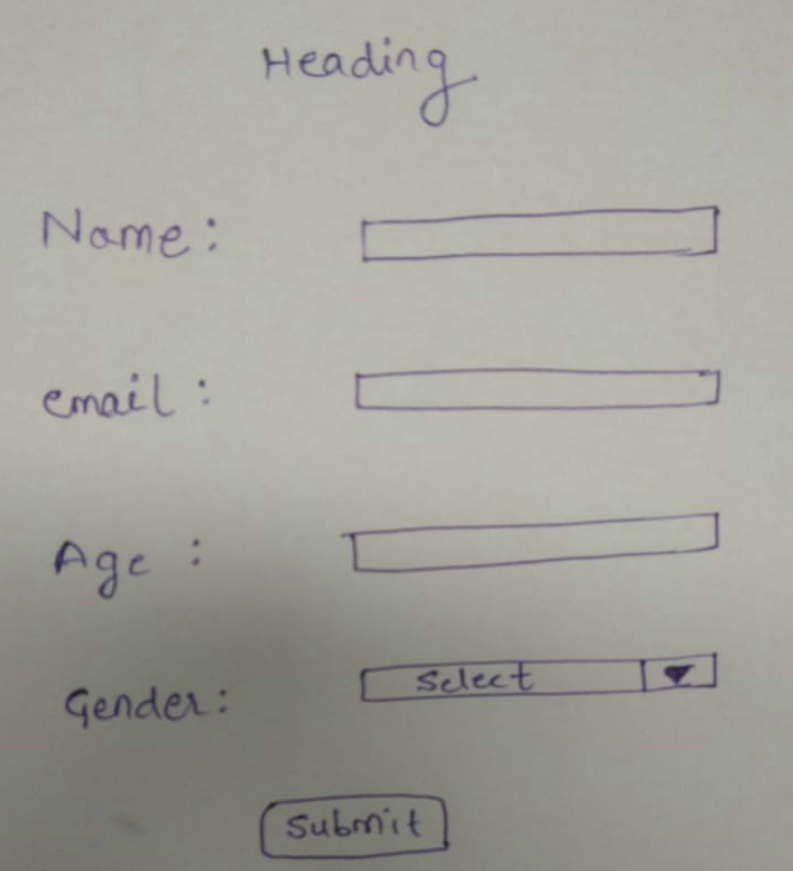 Heading
Name :
email :
Age :
Gender : Select
Submit